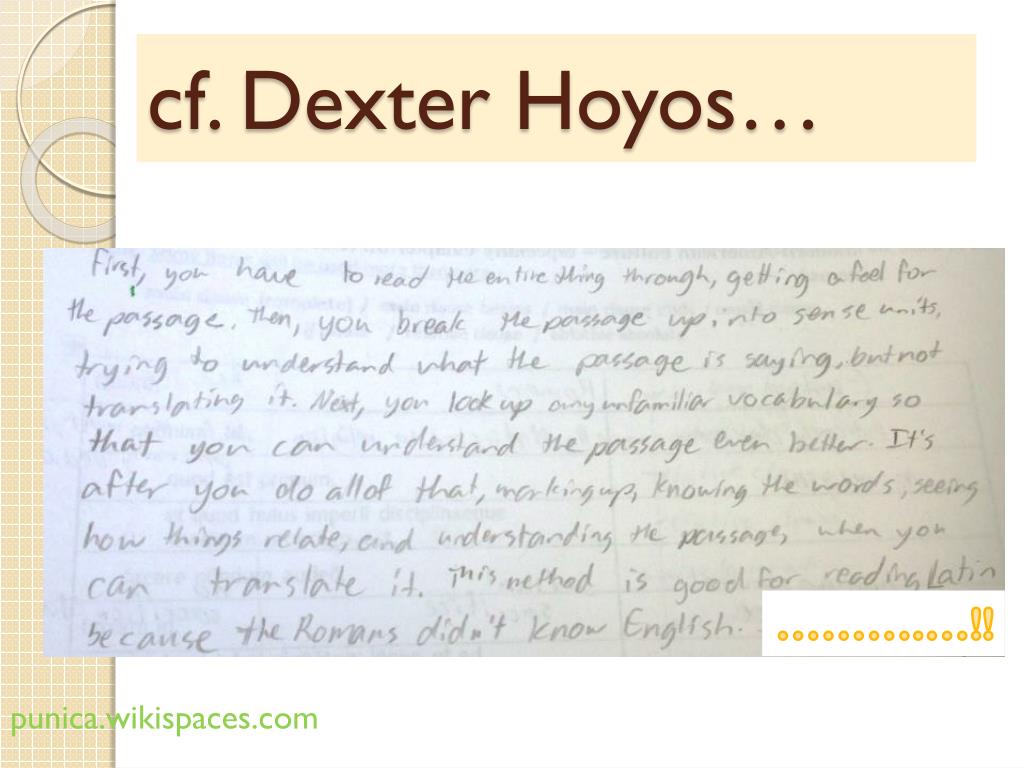 cf. Dexter Hoyos...
First, you have to read the entire thing through, getting a feel for
the passage. Then, you break the passage up into sense units,
trying to understand what the passage is saying, but not
translating it. Next, you look up any unfamiliar vocabulary so
that you can understand the passage even better. It's
after you do all of that, marking up, knowing the words, seeing
how things relate, and understanding the passage, when you
can translate it. This method is good for reading Latin
because the Romans didn't know English.
..............!!
punica.wikispaces.com